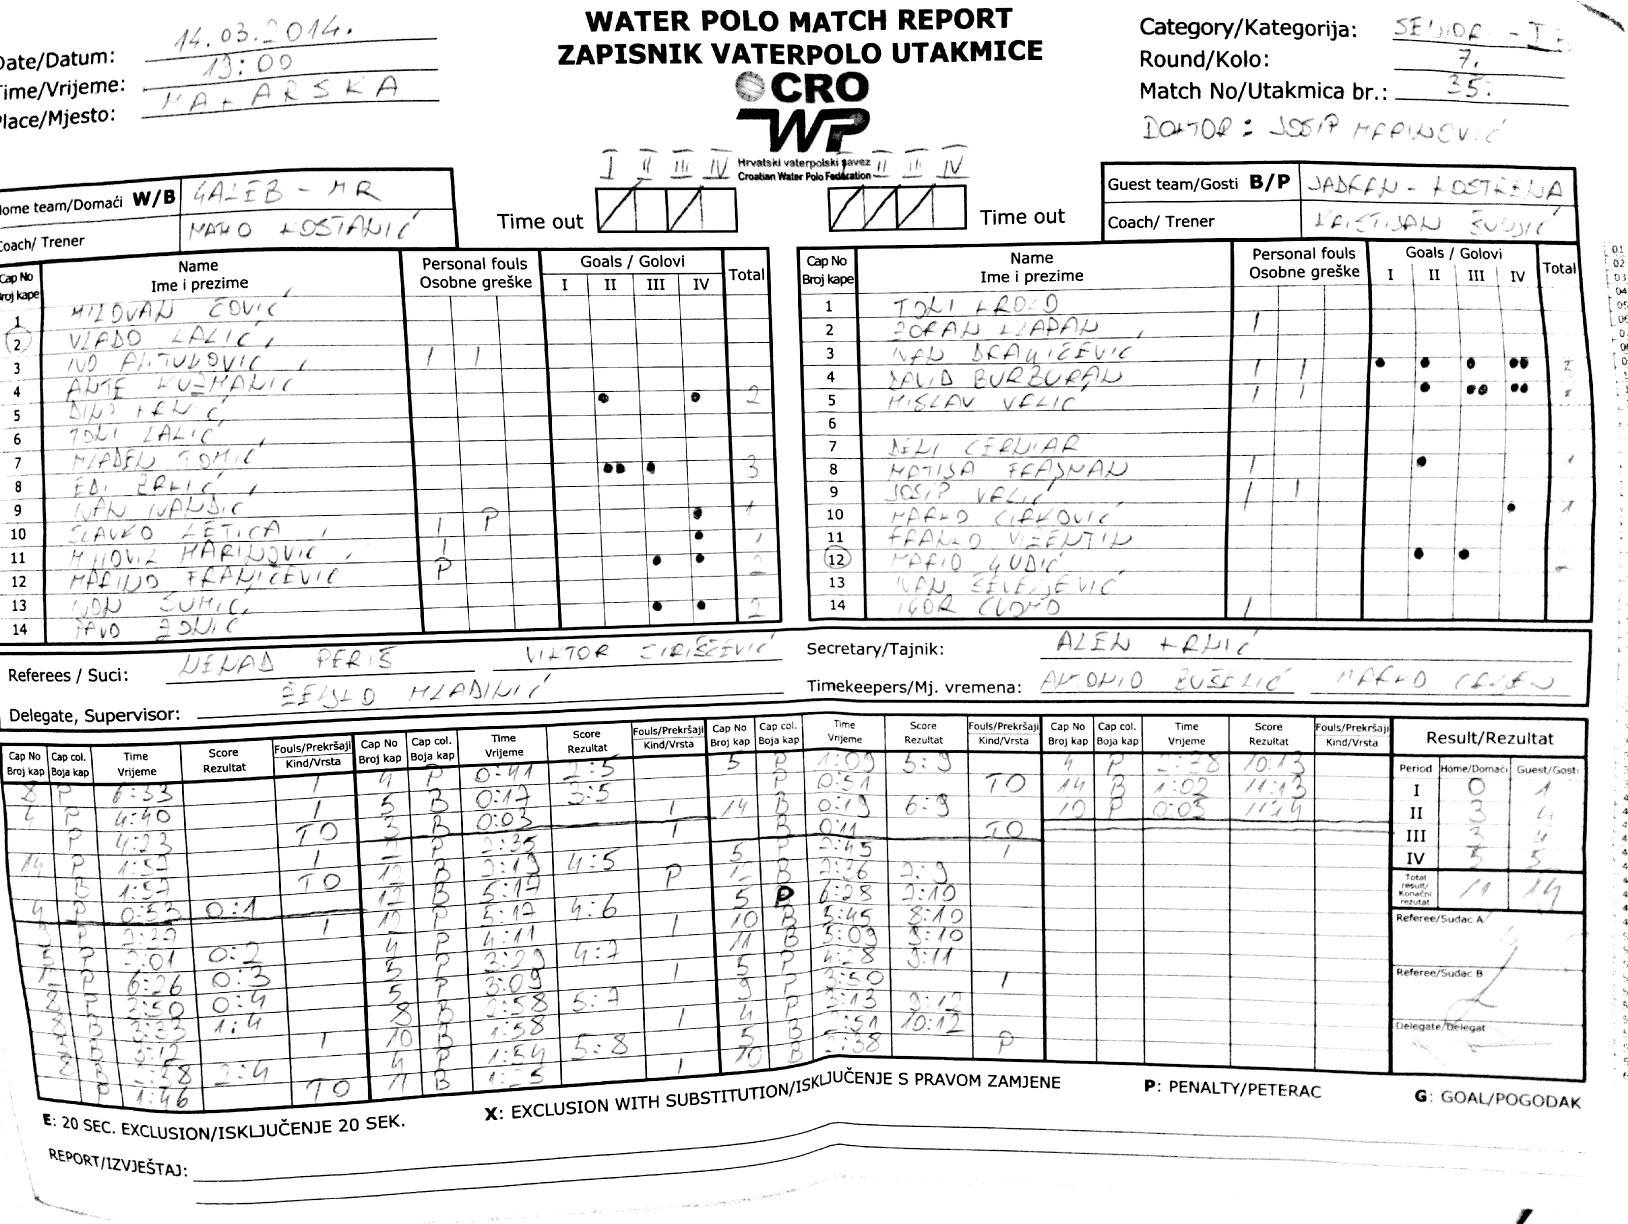 WATER POLO MATCH REPORT
ZAPISNIK VATERPOLO UTAKMICE
CRO
WP
Hrvatski vaterpolski savez
Croatian Water Polo Federation
Date/Datum: 14.03.2014.
Time/Vrijeme: 19:00
Place/Mjesto: MAKARSKA
Category/Kategorija: SENIOR
Round/Kolo: 7.
Match No/Utakmica br.: 35.
DOKTOR: JOSIP MARINOVIĆ
Home team/Domaći W/B GALEB - MR
Coach/ Trener MAKO KOSTANIĆ
I II III IV
Time out
II III IV
Time out
Guest team/Gosti B/P JADRAN - KOSTRENA
Coach/ Trener KRISTIJAN
Cap No Broj kape Name Ime i prezime Personal fouls Osobne greške Goals / Golovi I II III IV Total
1 MILOVAN ČOVIĆ
2 VLADO LALIĆ
3 IVO ANTUNOVIĆ
4 ANTE KUZMANIĆ 2
5 DINO
6 TONI LALIĆ
7 MLADEN TOMIĆ 3
8 EDI BRLIĆ
9 IVAN IVANDIĆ
10 SLAVKO LETICA P
11 MARINOVIĆ
12 MARINO FRANIČEVIĆ P
13 2
14
Cap No Broj kape Name Ime i prezime Personal fouls Osobne greške Goals / Golovi I II III IV Total
1 TONI
2 ZORAN
3 IVAN DRAGIČEVIĆ
4 DAVID BURBURAN
5 MISLAV VRLIĆ
6
7 DENI CERNIAR
8 MATIJA FRAJMAN
9 JOSIP VRLIĆ
10 MARKO CIRKOVIĆ 1
11 FRANKO VIZENTIN
12 MARIO GUDIĆ
13 IVAN
14 IGOR
Referees / Suci: NENAD PERIŠ VIKTOR JIRIŠČEVIĆ
Secretary/Tajnik: ALEN KRNIĆ
Delegate, Supervisor: ŽELJKO MLADINIĆ
Timekeepers/Mj. vremena: ANTONIO BUŠELIĆ MARKO
Cap No Broj kap Cap col. Boja kap Time Vrijeme Score Rezultat Fouls/Prekršaji Kind/Vrsta
8 P 6:33 1
4 P 4:40 1
P 4:23 TO
14 P 1:57 1
B 1:57 TO
4 P 0:53 0:1
5 P 7:01 0:2
P 6:26 0:3
8 P 3:50 0:4
8 B 3:33 1:4
8 B 2:58 2:4
P 1:46 TO
Cap No Broj kap Cap col. Boja kap Time Vrijeme Score Rezultat Fouls/Prekršaji Kind/Vrsta
4 P 0:41 2:5
5 B 0:17 3:5
3 B 0:03 1
12 B 7:19 4:5
12 B 5:17 P
12 P 5:17 4:6
4 P 4:11
5 P 3:29 4:7
5 P 3:09
8 B 2:58 5:7
10 B 1:58
4 P 1:54 5:8
11 B 1:25
Cap No Broj kap Cap col. Boja kap Time Vrijeme Score Rezultat Fouls/Prekršaji Kind/Vrsta
5 P 1:09 5:9
P 0:51 TO
14 B 0:19 6:9
B 0:11 TO
5 P 7:45 1
12 B 7:36 7:9
5 P 6:28 7:10
10 B 5:45 8:10
11 B 5:09 9:10
5 P 4:28 9:11
9 P 3:50 1
4 P 3:13 9:12
5 B 2:51 10:12
10 B 2:38 P
Cap No Broj kap Cap col. Boja kap Time Vrijeme Score Rezultat Fouls/Prekršaji Kind/Vrsta
4 P 2:28 10:13
14 B 1:02 11:13
10 P 0:03 11:14
Result/Rezultat
Period Home/Domaći Guest/Gosti
I 0 1
II 3 4
III 3 4
IV 5 5
Total result/Konačni rezutat 11 14
Referee/Sudac A
Referee/Sudac B
Delegate/Delegat
E: 20 SEC. EXCLUSION/ISKLJUČENJE 20 SEK.
X: EXCLUSION WITH SUBSTITUTION/ISKLJUČENJE S PRAVOM ZAMJENE
P: PENALTY/PETERAC
G: GOAL/POGODAK
REPORT/IZVJEŠTAJ: